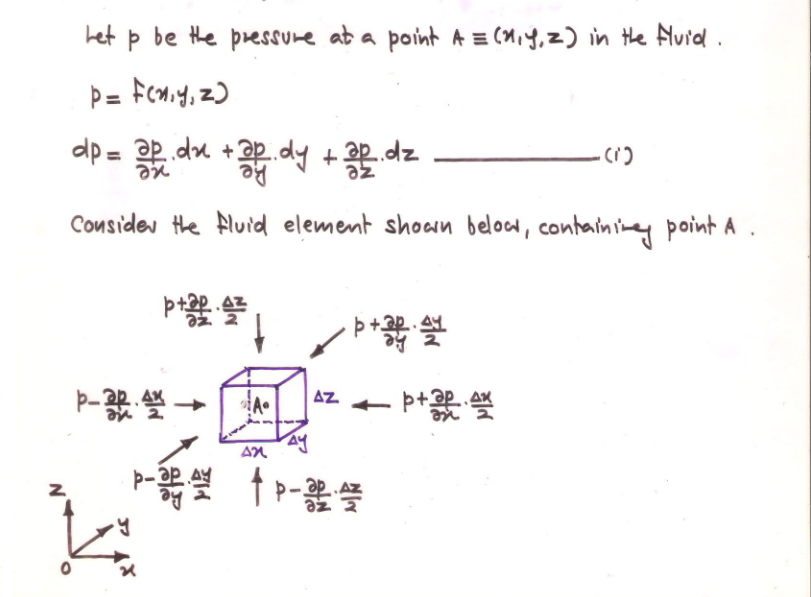 Let p be the pressure at a point A ≡ (x,y,z) in the fluid.
p = f(x,y,z)
dp = ∂p/∂x .dx + ∂p/∂y .dy + ∂p/∂z .dz ——— (i)
Consider the fluid element shown below, containing point A.
p+∂p/∂z . Δz/2
p+∂p/∂y . Δy/2
p-∂p/∂x . Δx/2
A
Δz
p+∂p/∂x . Δx/2
Δx
Δy
p-∂p/∂y . Δy/2
p-∂p/∂z . Δz/2
z
y
O
x